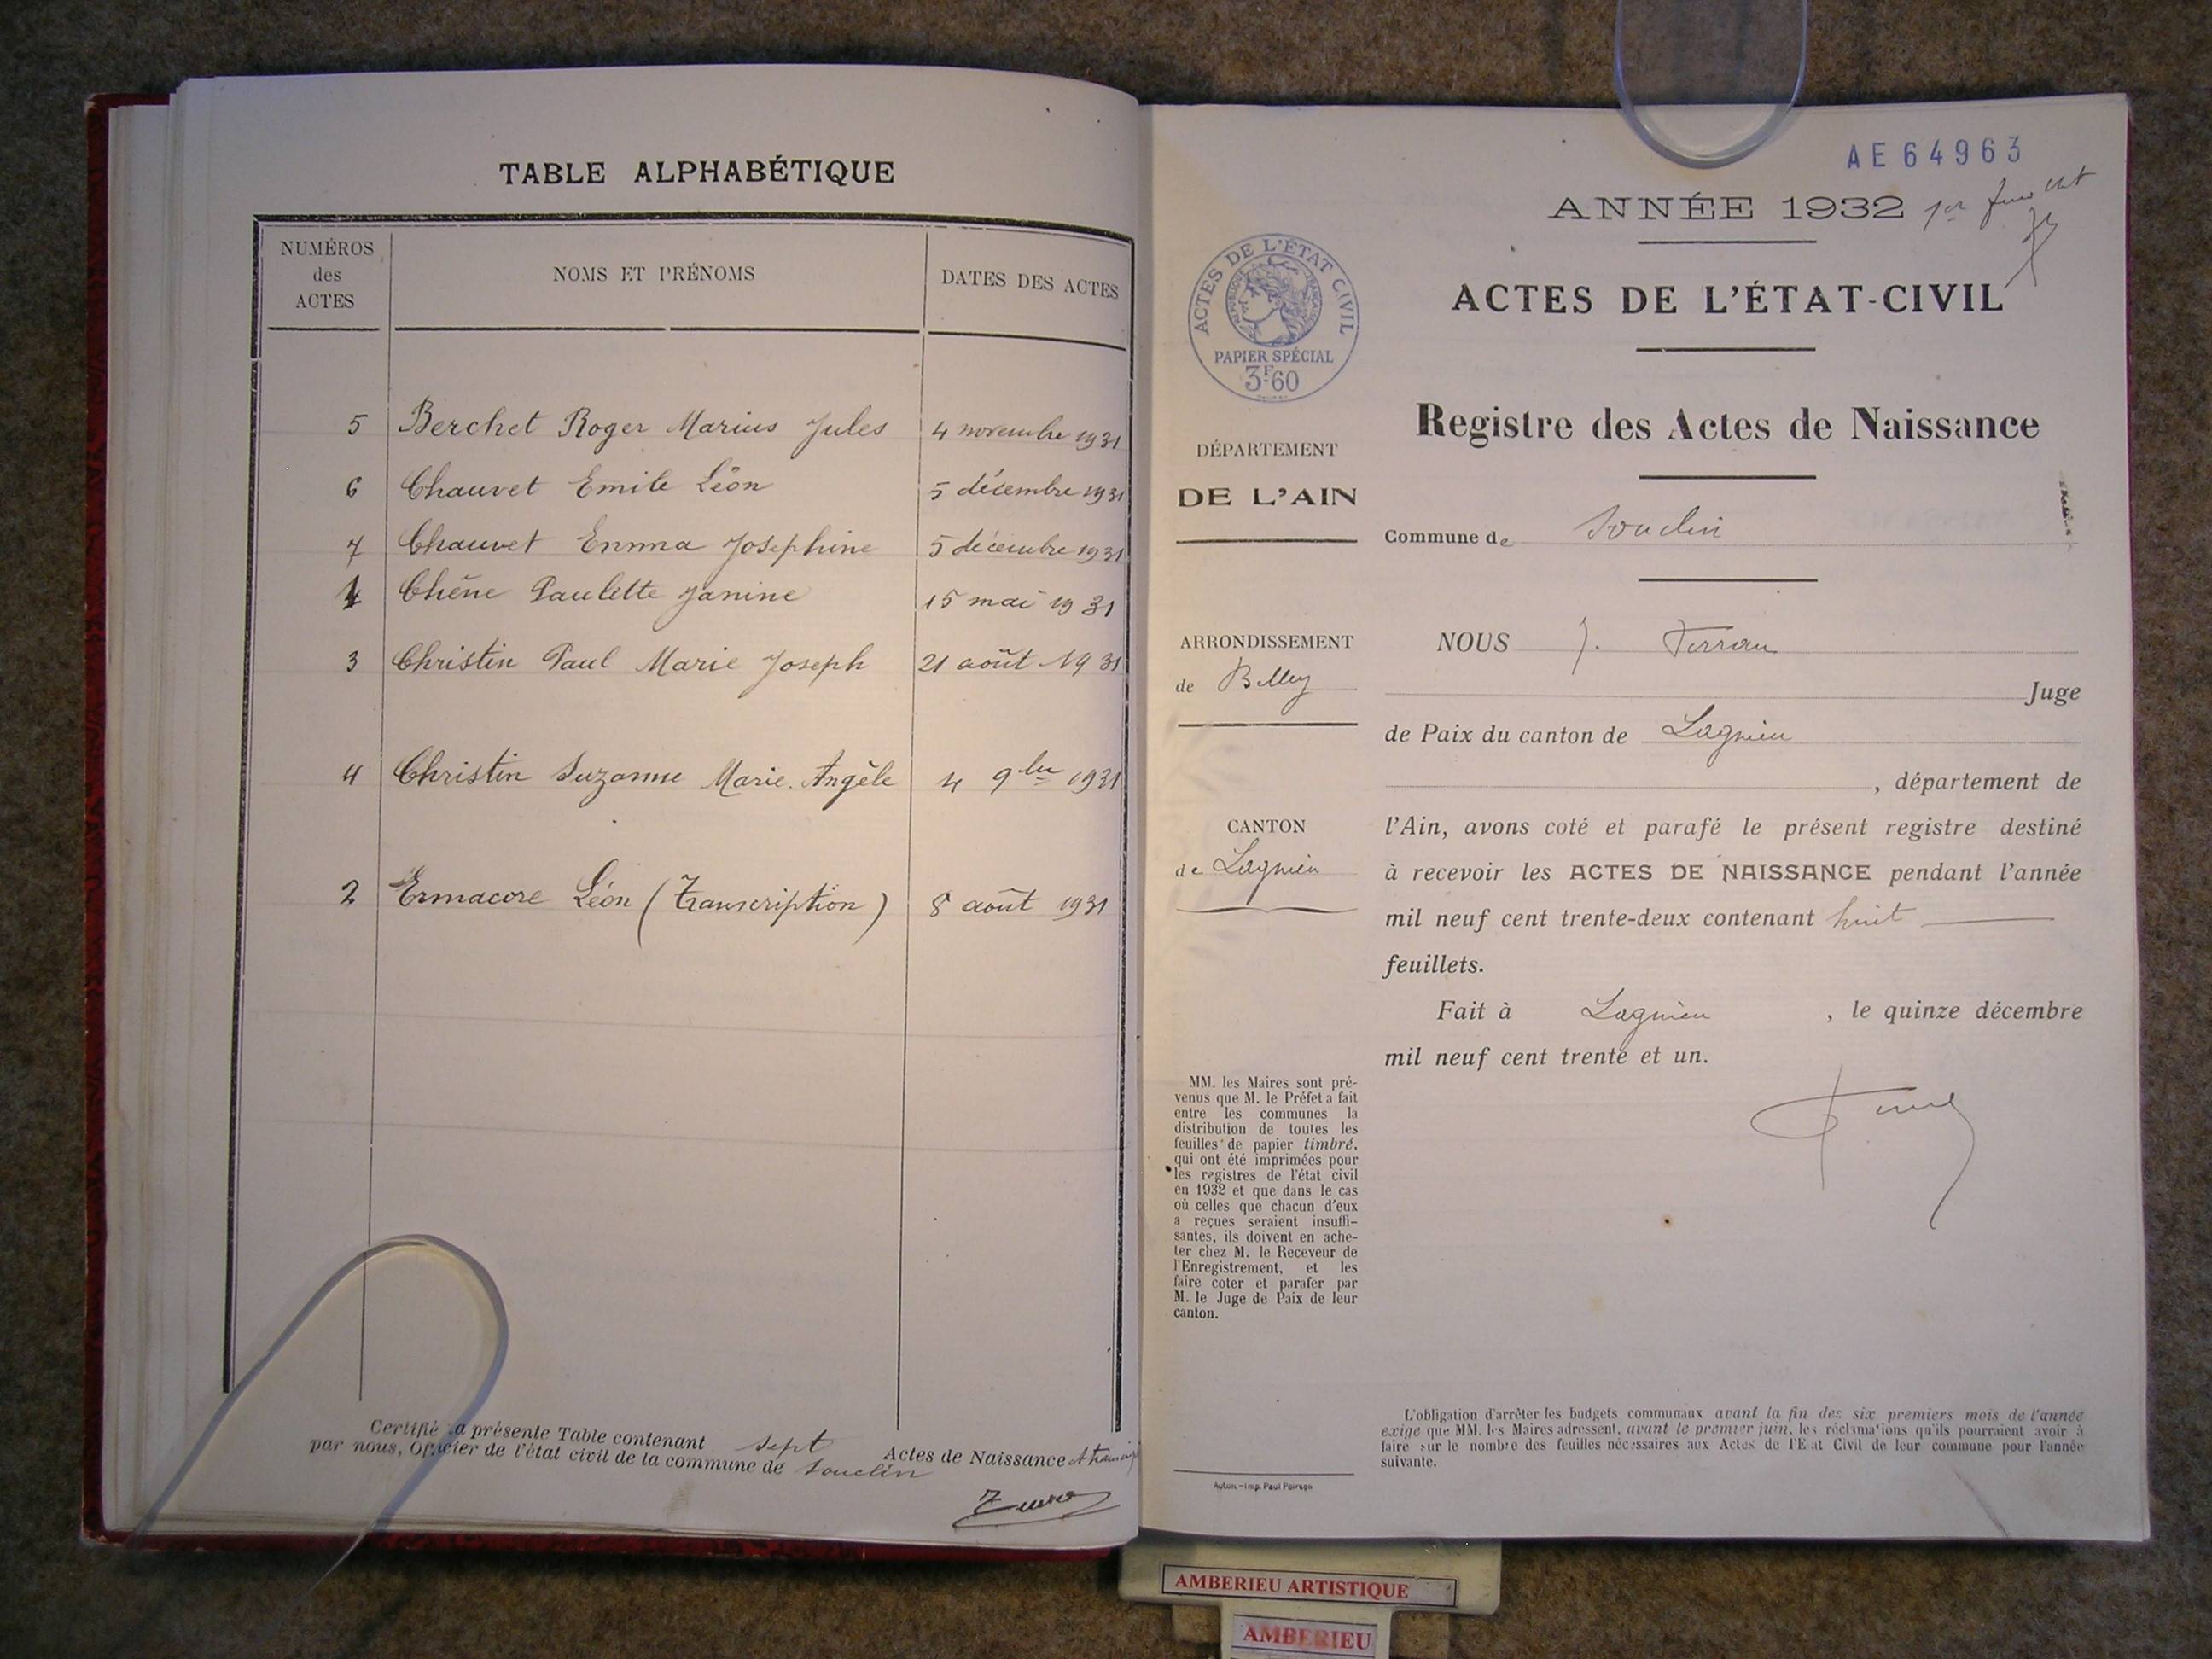 TABLE ALPHABÉTIQUE
NUMÉROS
des
ACTES
NOMS ET PRÉNOMS
DATES DES ACTES
5 Berchet Roger Marius Jules 4 novembre 1931
6 Chauvet Emile Léon 5 décembre 1931
7 Chauvet Emma Josephine 5 décembre 1931
1 Chêne Paulette Janine 15 mai 1931
3 Christin Paul Marie Joseph 21 août 1931
4 Christin Suzanne Marie. Angèle 4 9bre 1931
2 Ermacore Léon (Transcription) 8 août 1931
Certifié la présente Table contenant sept Actes de Naissance
par nous, Officier de l'état civil de la commune de Souclin
AE64963
ANNÉE 1932 1er feuillet
ACTES DE L'ÉTAT CIVIL
RÉPUBLIQUE FRANÇAISE
PAPIER SPÉCIAL
3F60
ACTES DE L'ÉTAT-CIVIL
Registre des Actes de Naissance
DÉPARTEMENT
DE L'AIN
Commune de Souclin
ARRONDISSEMENT
de Belley
CANTON
de Lagnieu
NOUS J. Ferran
Juge
de Paix du canton de Lagnieu
, département de
l'Ain, avons coté et parafé le présent registre destiné
à recevoir les ACTES DE NAISSANCE pendant l'année
mil neuf cent trente-deux contenant huit
feuillets.
Fait à Lagnieu , le quinze décembre
mil neuf cent trente et un.
MM. les Maires sont pré-
venus que M. le Préfet a fait
entre les communes la
distribution de toutes les
feuilles de papier timbré,
qui ont été imprimées pour
les registres de l'état civil
en 1932 et que dans le cas
où celles que chacun d'eux
a reçues seraient insuffi-
santes, ils doivent en ache-
ter chez M. le Receveur de
l'Enregistrement, et les
faire coter et parafer par
M. le Juge de Paix de leur
canton.
L'obligation d'arrêter les budgets communaux avant la fin des six premiers mois de l'année
exige que MM. les Maires adressent, avant le premier juin, les réclamations qu'ils pourraient avoir à
faire sur le nombre des feuilles nécessaires aux Actes de l'Etat Civil de leur commune pour l'année
suivante.
Autun.—Imp. Paul Poirson
AMBERIEU ARTISTIQUE
AMBERIEU